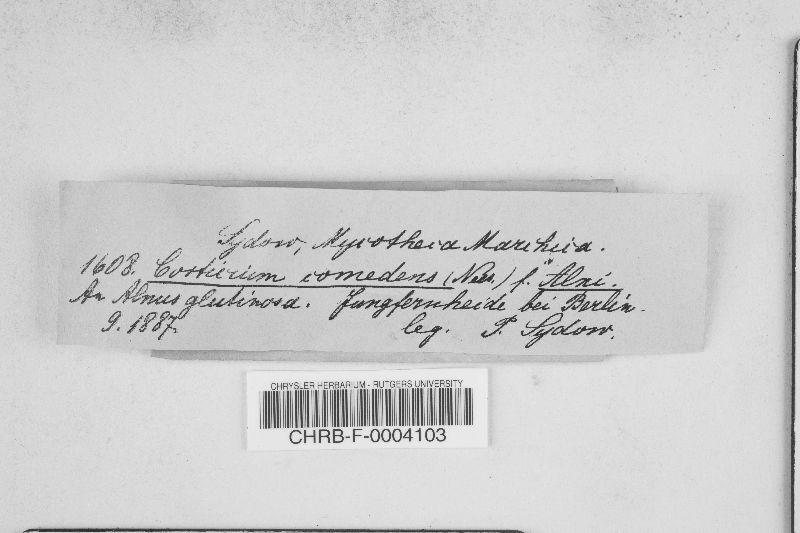 Sydow, Mycotheca Marchica.
1608. Corticium comedens (Nees.) f. Alni.
An Alnus glutinosa. Jungfernheide bei Berlin.
9. 1887. leg. P. Sydow.
CHRYSLER HERBARIUM - RUTGERS UNIVERSITY
CHRB-F-0004103